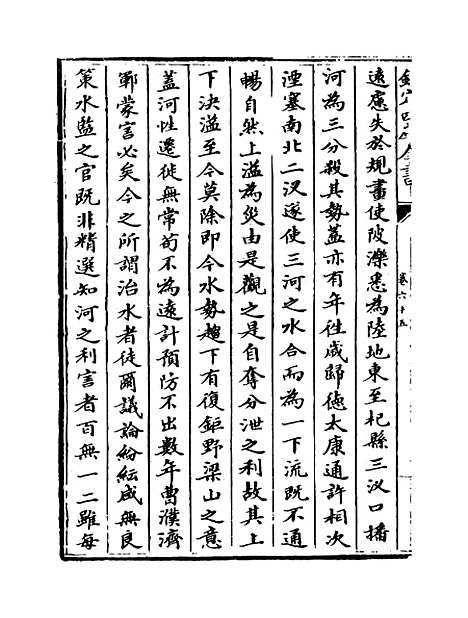 欽定四庫全書
卷六十五
遠慮失於規畫使陂濼悉為陸地東至杞縣三汊口播
河為三分殺其勢蓋亦有年往歳歸徳太康通許相次
湮塞南北二汊遂使三河之水合而為一下流既不通
暢自然上溢為災由是觀之是自奪分泄之利故其上
下決溢至今莫除即今水勢趨下有復鉅野梁山之意
蓋河性遷徙無常茍不為遠計預防不出數年曹濮濟
鄆蒙害必矣今之所謂治水者徒爾議論紛紜咸無良
策水監之官既非精選知河之利害者百無一二雖每